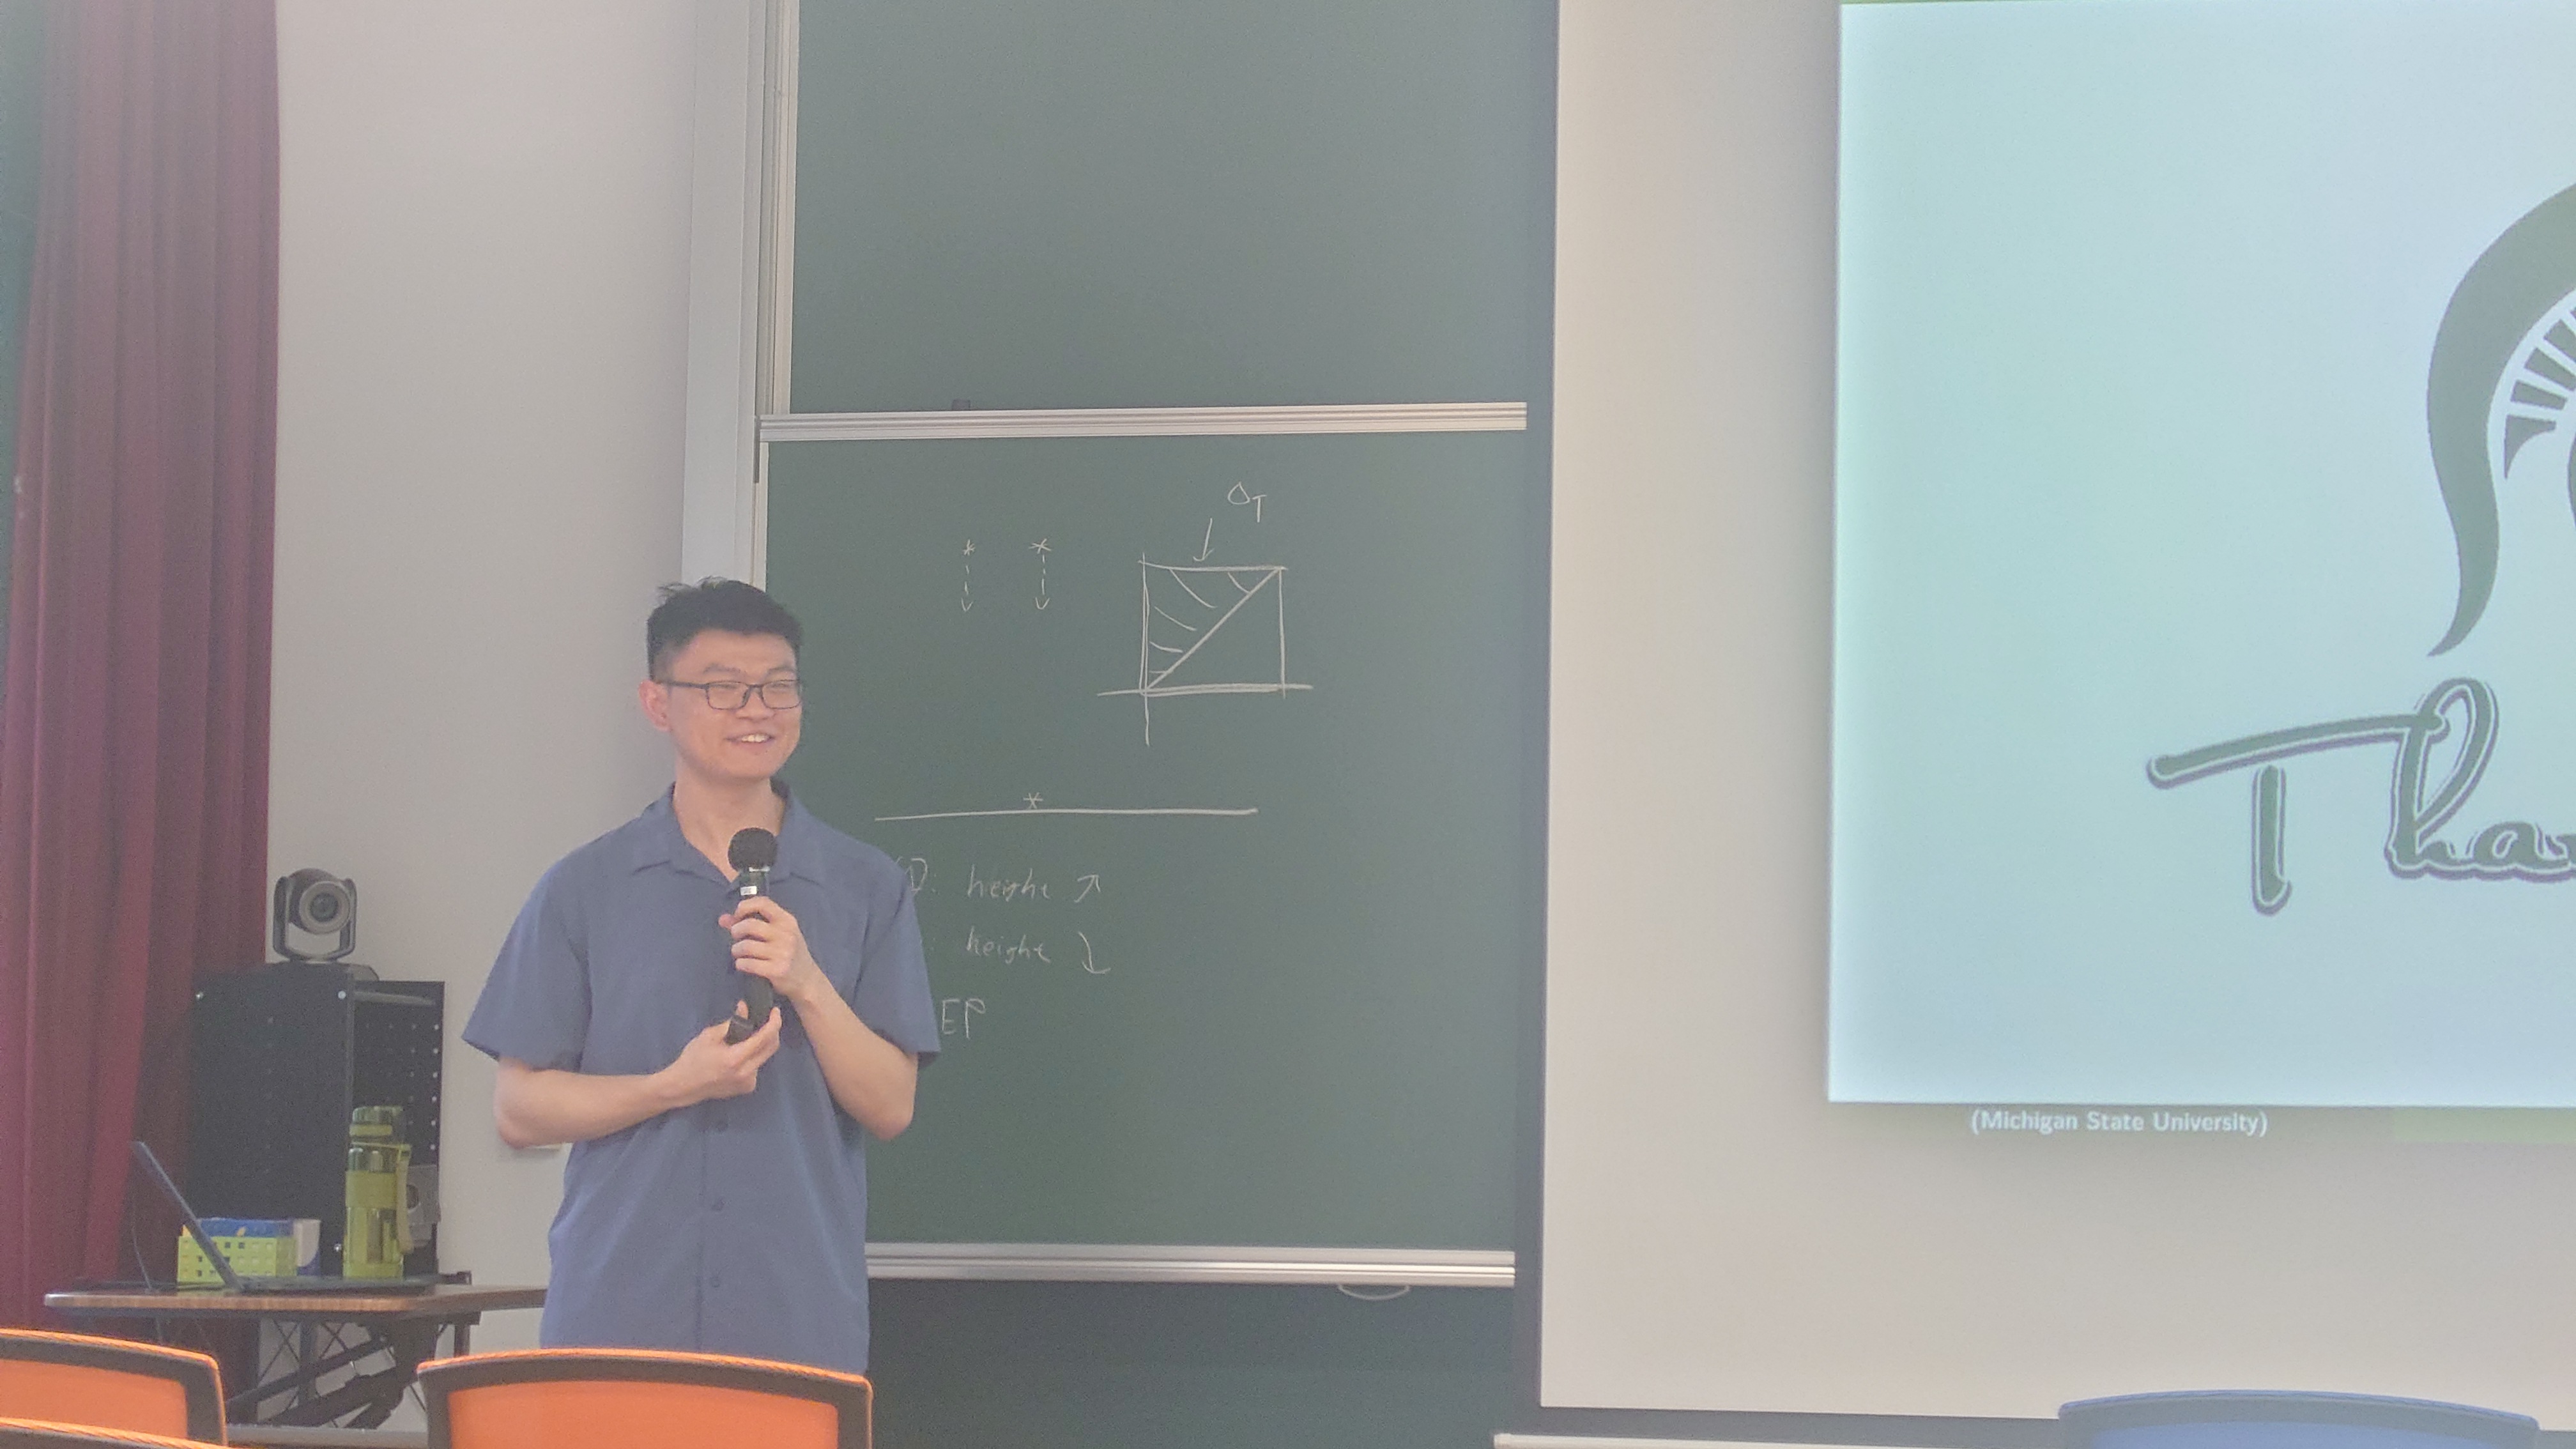 height ↗
height ↘
EP
Tha
(Michigan State University)